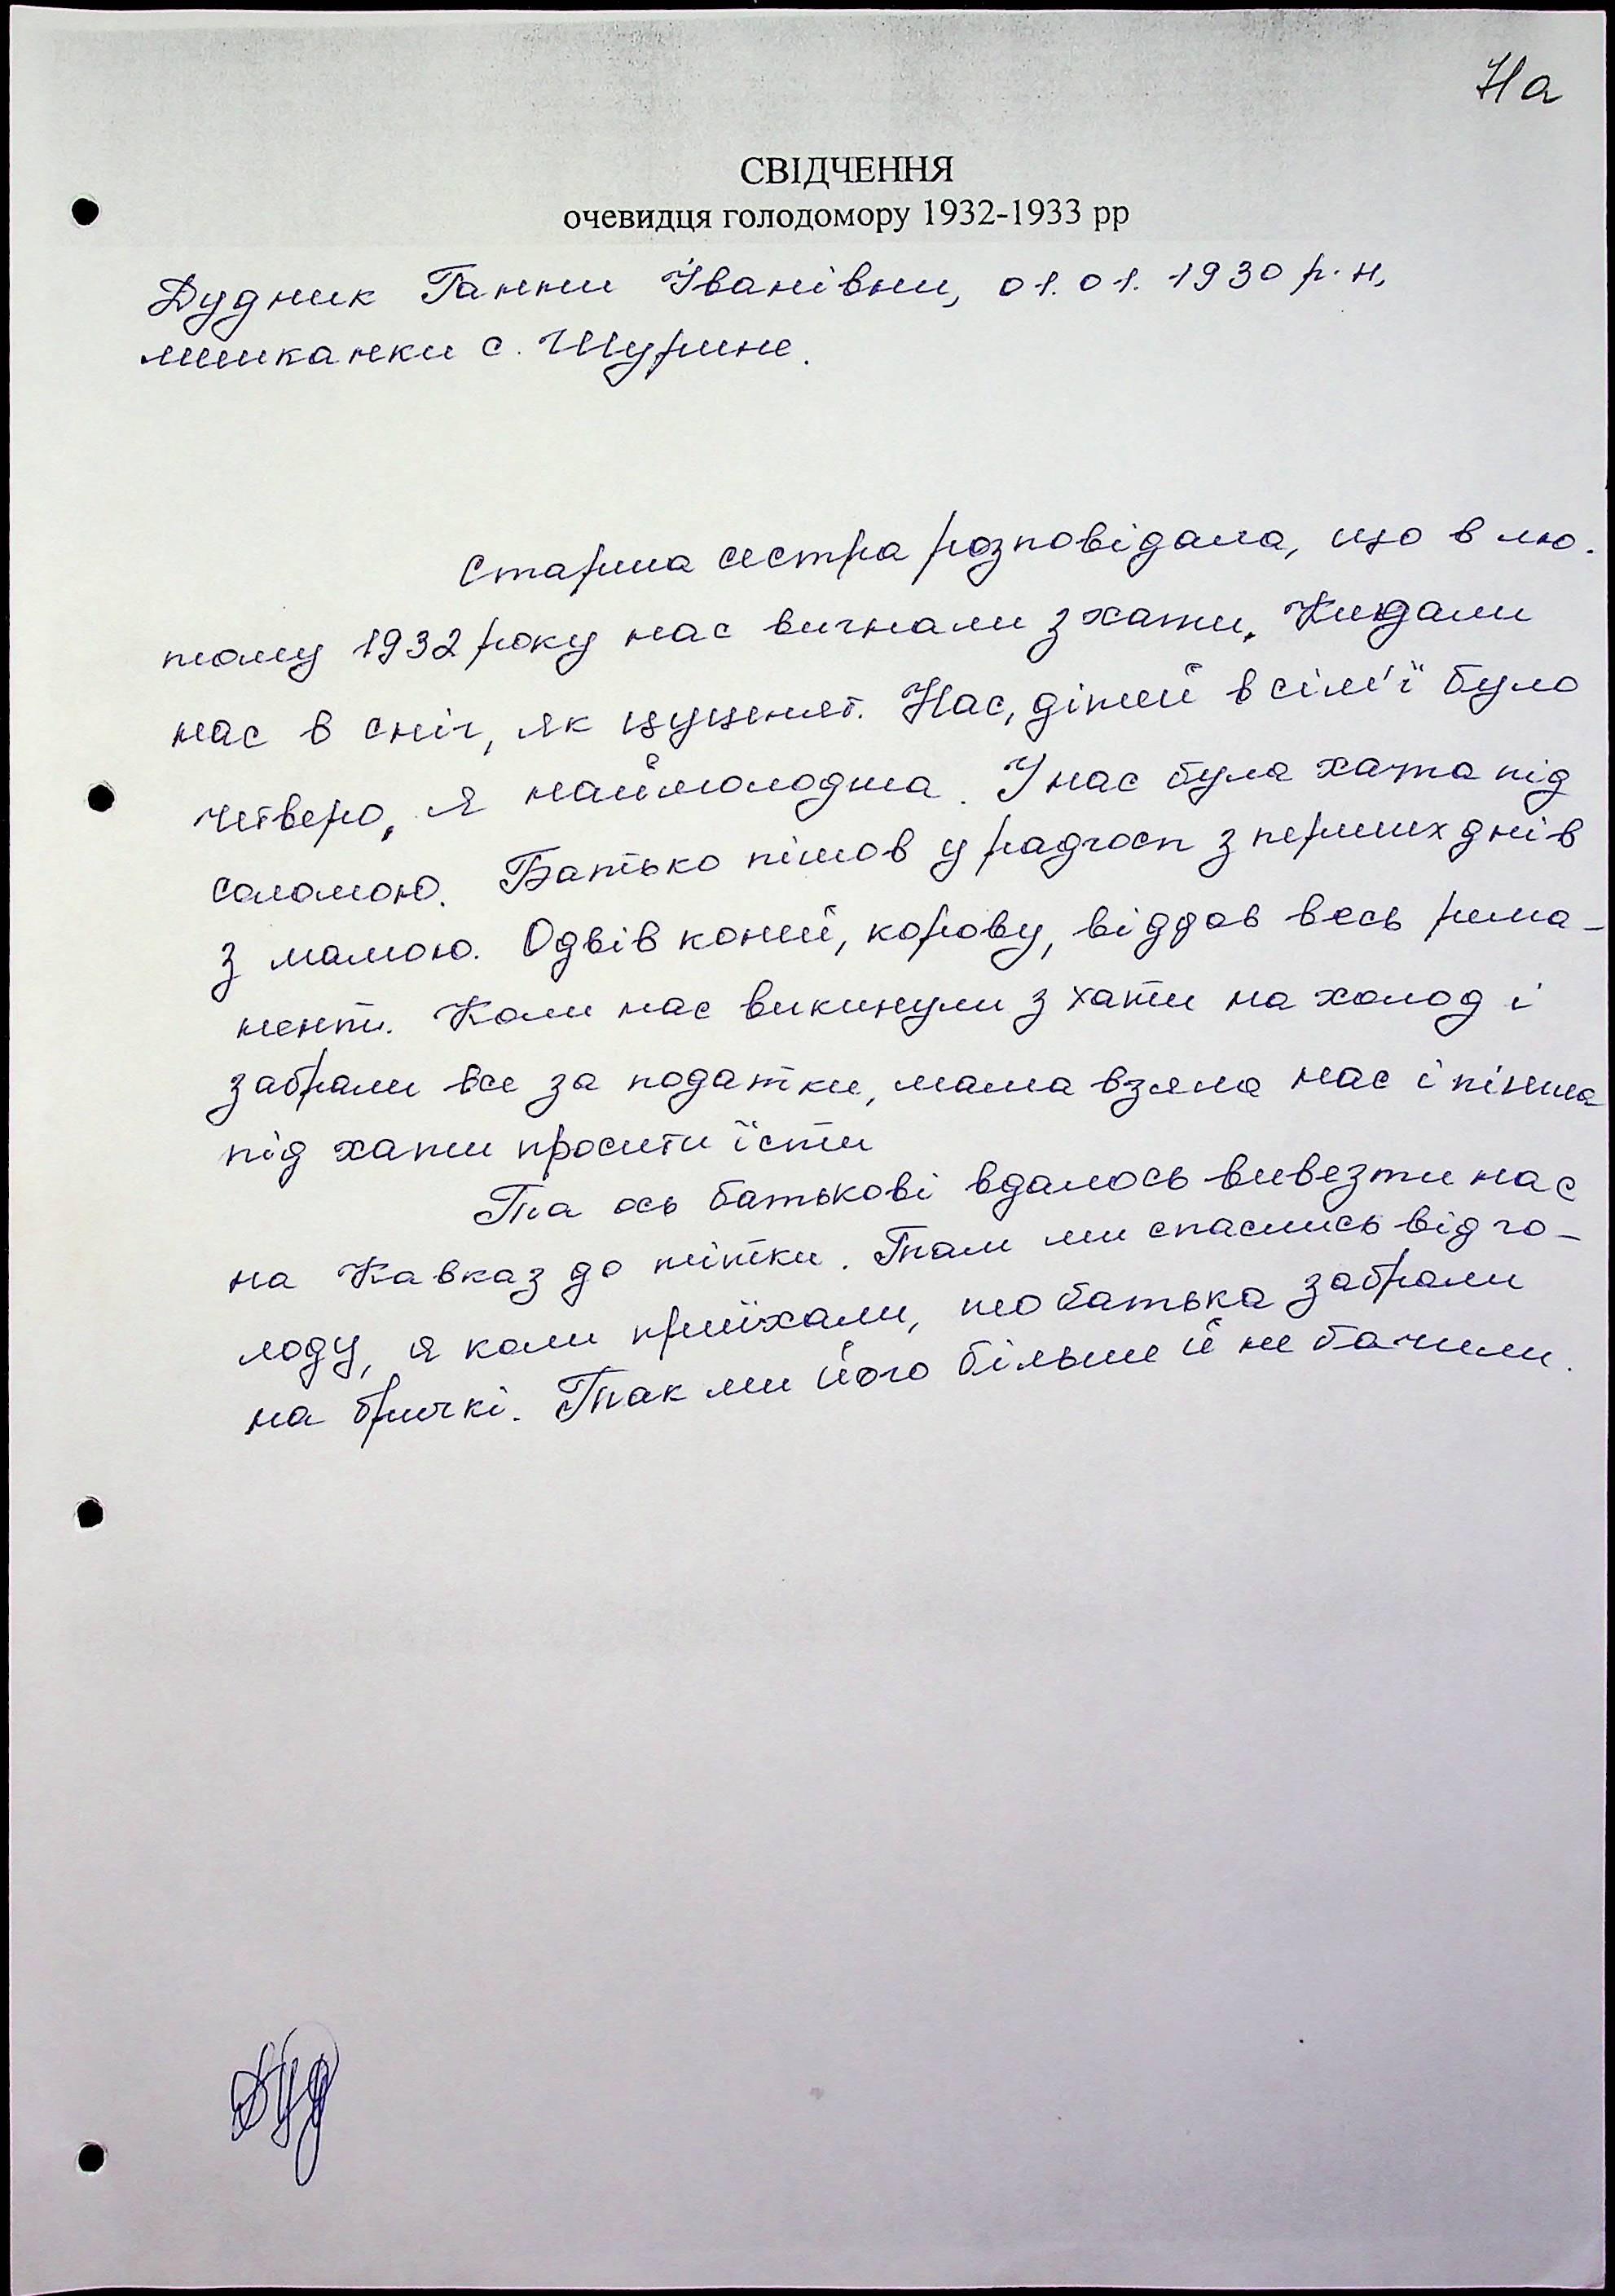 На
СВІДЧЕННЯ
очевидця голодомору 1932-1933 рр
Дудник Ганни Іванівни, 01.01.1930 р.н,
мешканки с. Шурине.
Старша сестра розповідала, що в лю-
тому 1932 року нас вигнали з хати. Кидали
нас в сніг, як цуценят. Нас, дітей в сім'ї було
четверо, я наймолодша. У нас була хата під
соломою. Батько пішов у радгосп з перших днів
з мамою. Одвів коней, корову, віддав весь рима-
нент. Коли нас викинули з хати на холод і
забрали все за податки, мама взяла нас і пішла
під хати просити їсти
Та ось батькові вдалось вивезти нас
на Кавказ до тітки. Там ми спаслись від го-
лоду, я коли приїхали, то батька забрали
на бричкі. Так ми його більше й не бачили.
Дуд